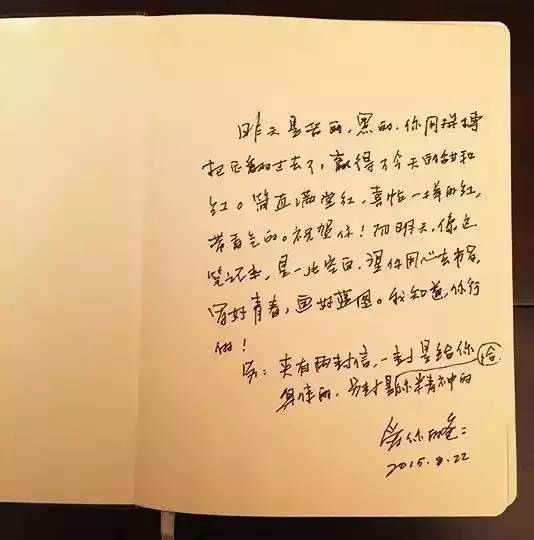 昨天是苦的，黑的，你用拼搏
把它翻过去了，赢得了今天的甜和
红。简直满堂红，喜帖一样的红，
带香气的。祝贺你！而明天，像这
笔记本，是一片空白，望你用心去书写，
写好青春，画好蓝图。我知道，你行
的！
另：夹有两封信，一封是给你
身体的，另封是给你精神的
爱你的爸：
2015.8.22